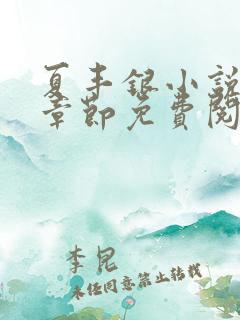 夏丰银小说
章节免费阅
李昆
未经同意禁止转载